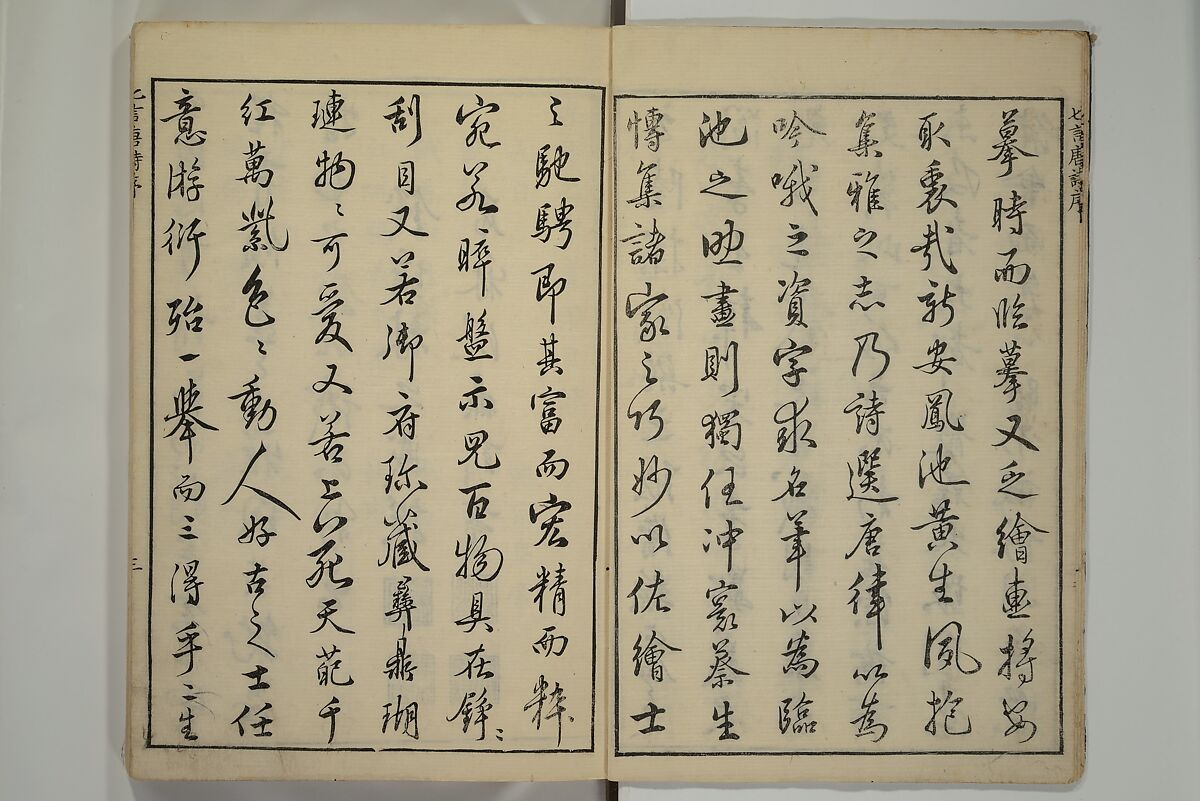 七言唐詩序
摹時而臨摹又乏繪事將安
取衷哉新安鳳池黃生夙抱
集雅之志乃詩選唐律以為
吟哦之資字求名筆以為臨
池之助畫則獨任沖寰蔡生
博集諸家之巧妙以佐繪士
之馳騁即其富而宏精而粹
宛若晬盤示兒百物具在錚〻
刮目又若御府珍藏彝鼎瑚
璉物〻可愛又若上苑天葩千
紅萬紫色〻動人好古之士任
意游衍殆一舉而三得乎二生
七言唐詩序
三